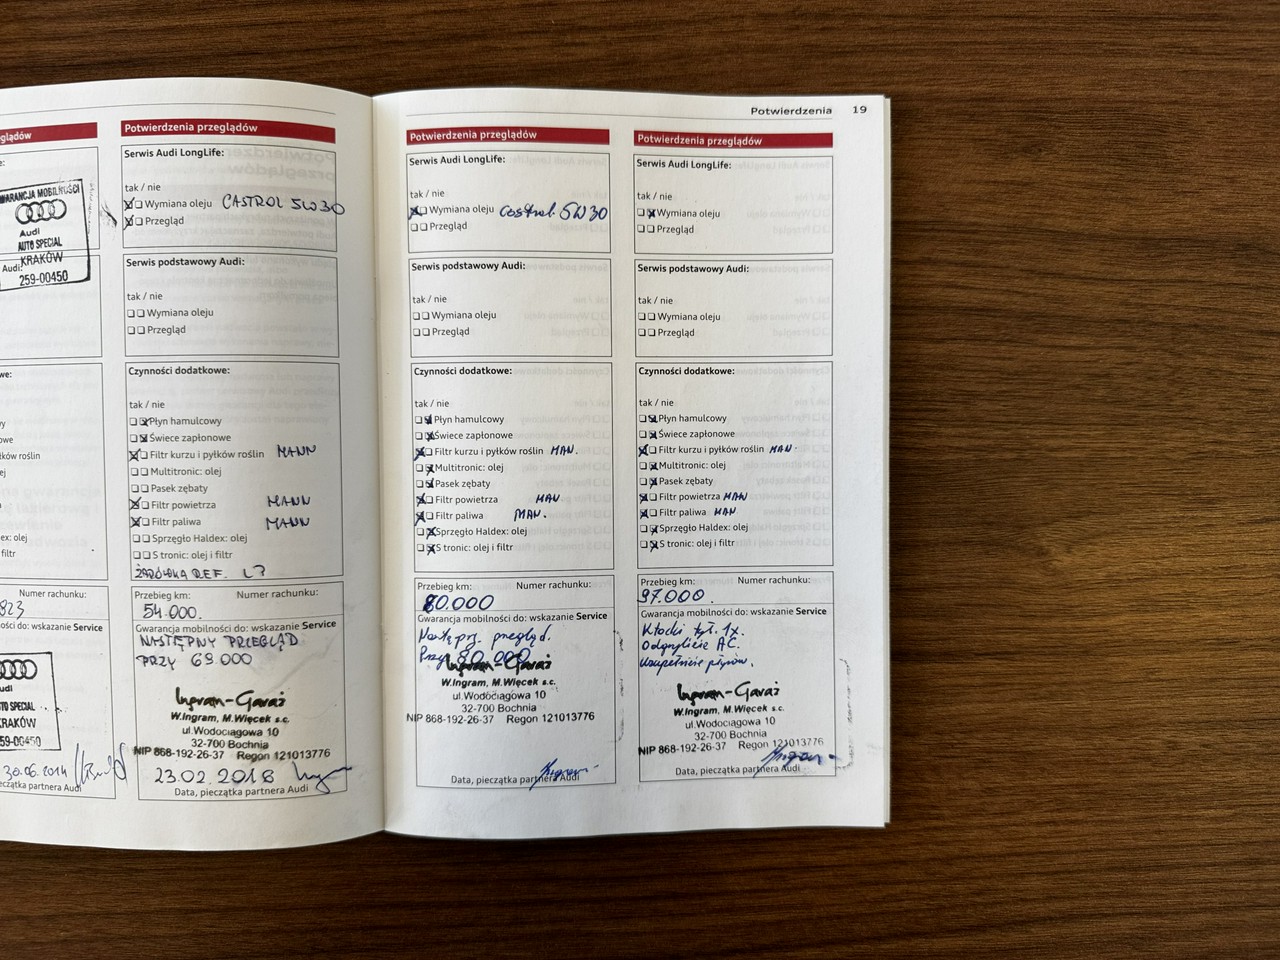 Potwierdzenia 19
glądów
e:
WARANCJA MOBILNOŚCI
Audi
AUTO SPECIAL
KRAKÓW
Audi:
259-00450
we:
y
owe
łków roślin
ej
ex: olej
filtr
Numer rachunku:
823
ości do: wskazanie Service
udi
TO SPECIAL
KRAKÓW
59-00450
30.06.2014
eczątka partnera Audi
Potwierdzenia przeglądów
Serwis Audi LongLife:
tak / nie
Wymiana oleju CASTROL 5W30
Przegląd
Serwis podstawowy Audi:
tak / nie
Wymiana oleju
Przegląd
Czynności dodatkowe:
tak / nie
Płyn hamulcowy
Świece zapłonowe
Filtr kurzu i pyłków roślin MANN
Multitronic: olej
Pasek zębaty
Filtr powietrza MANN
Filtr paliwa MANN
Sprzęgło Haldex: olej
S tronic: olej i filtr
ŻARÓWKA REF. L?
Przebieg km: Numer rachunku:
54.000.
Gwarancja mobilności do: wskazanie Service
NASTĘPNY PRZEGLĄD
PRZY 69.000
Ingram-Garaż
W.Ingram, M.Więcek s.c.
ul.Wodociągowa 10
32-700 Bochnia
NIP 868-192-26-37 Regon 121013776
23.02.2018
Data, pieczątka partnera Audi
Potwierdzenia przeglądów
Serwis Audi LongLife:
tak / nie
Wymiana oleju Castrol 5W30
Przegląd
Serwis podstawowy Audi:
tak / nie
Wymiana oleju
Przegląd
Czynności dodatkowe:
tak / nie
Płyn hamulcowy
Świece zapłonowe
Filtr kurzu i pyłków roślin MAN.
Multitronic: olej
Pasek zębaty
Filtr powietrza MAN
Filtr paliwa MAN.
Sprzęgło Haldex: olej
S tronic: olej i filtr
Przebieg km: Numer rachunku:
80.000
Gwarancja mobilności do: wskazanie Service
Przy 90.000
Ingram-Garaż
W.Ingram, M.Więcek s.c.
ul.Wodociągowa 10
32-700 Bochnia
NIP 868-192-26-37 Regon 121013776
Data, pieczątka partnera Audi
Potwierdzenia przeglądów
Serwis Audi LongLife:
tak / nie
Wymiana oleju
Przegląd
Serwis podstawowy Audi:
tak / nie
Wymiana oleju
Przegląd
Czynności dodatkowe:
tak / nie
Płyn hamulcowy
Świece zapłonowe
Filtr kurzu i pyłków roślin MAN.
Multitronic: olej
Pasek zębaty
Filtr powietrza MAN
Filtr paliwa MAN
Sprzęgło Haldex: olej
S tronic: olej i filtr
Przebieg km: Numer rachunku:
97.000.
Gwarancja mobilności do: wskazanie Service
Klocki tył. 1x.
Odgrzybicie AC.
Uzupełnicie płynów.
Ingram-Garaż
W.Ingram, M.Więcek s.c.
ul.Wodociągowa 10
32-700 Bochnia
NIP 868-192-26-37 Regon 121013776
Data, pieczątka partnera Audi